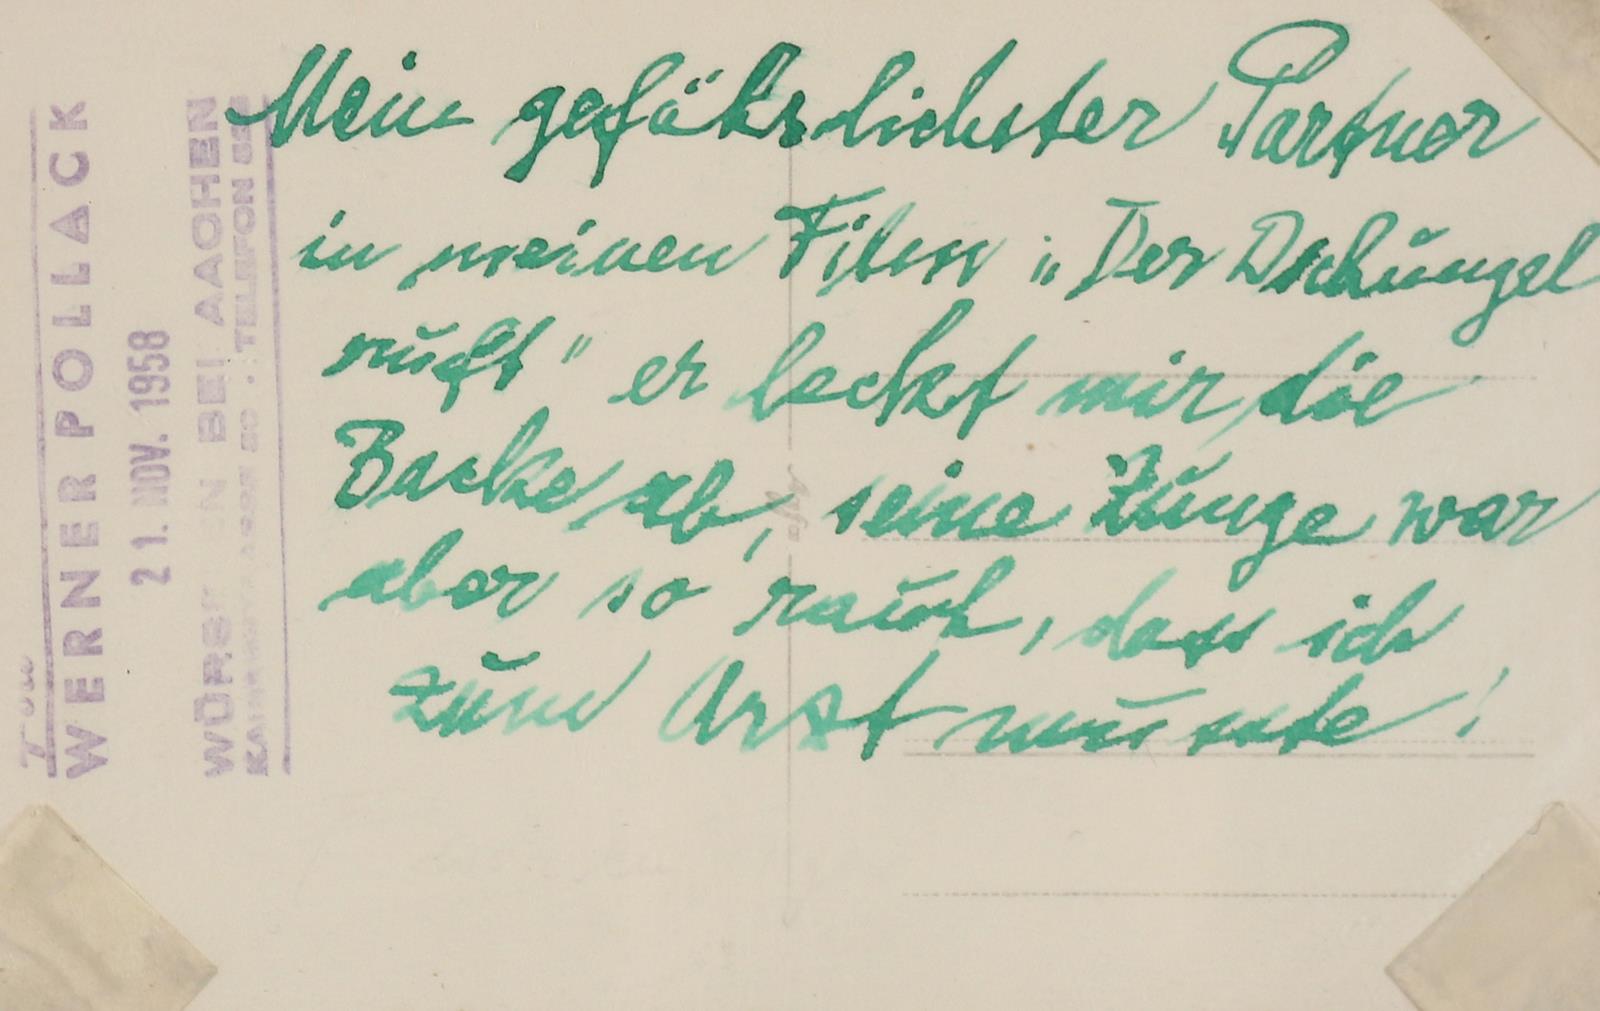 Mein gefährlichster Partner
in meinen Film "Der Dschungel
ruft" er leckt mir die
Backe ab, seine Zunge war
aber so rauh, dass ich
zum Arzt musste!
WERNER POLLACK
21. NOV. 1958
BEI AACHEN
TELEFON